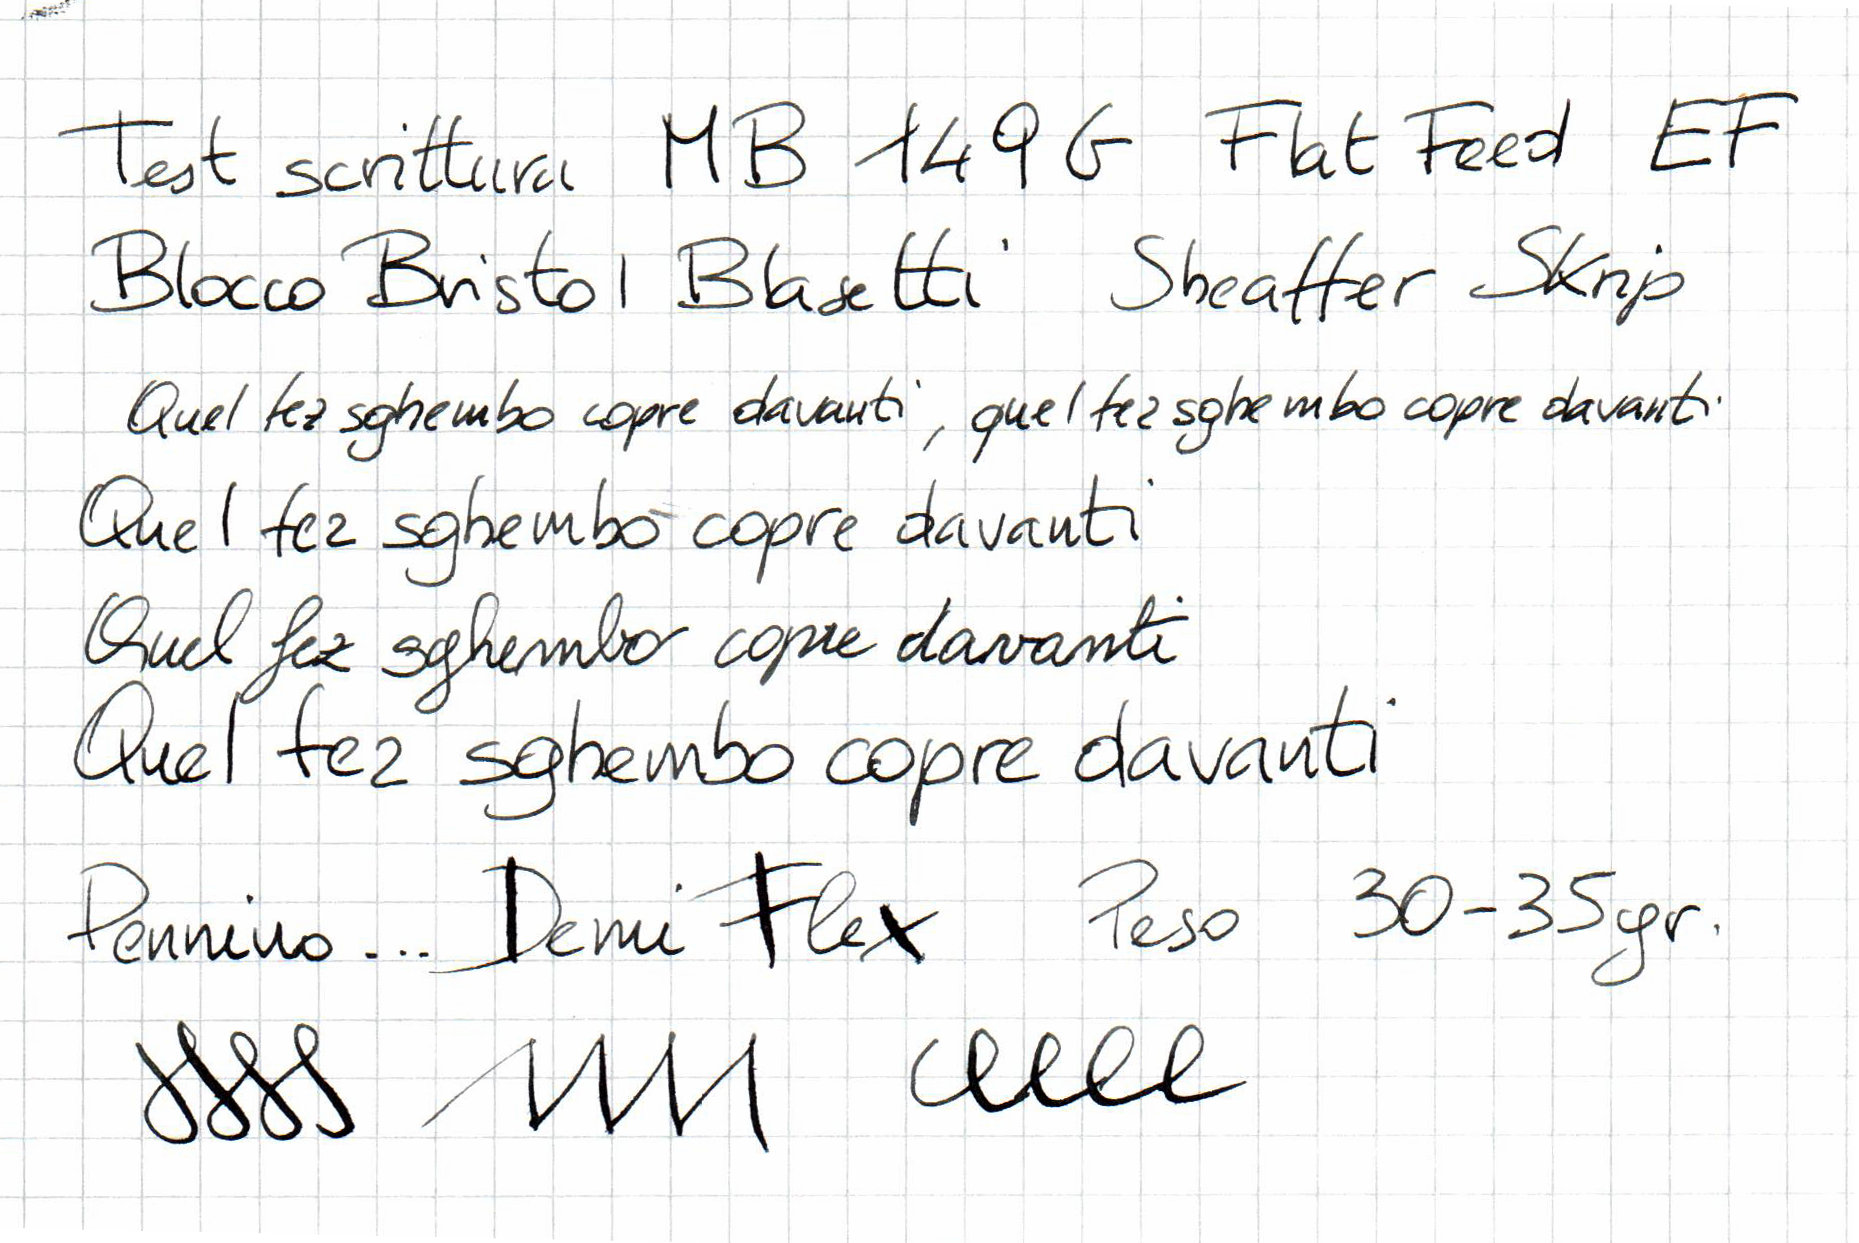 Test scrittura MB 149 G Flat Feed EF
Blocco Bristol Blasetti Sheaffer Skrip
Quel fez sghembo copre davanti, quel fez sghembo copre davanti.
Quel fez sghembo copre davanti
Quel fez sghembo copre davanti
Quel fez sghembo copre davanti
Pennino... Demi Flex Peso 30-35gr.